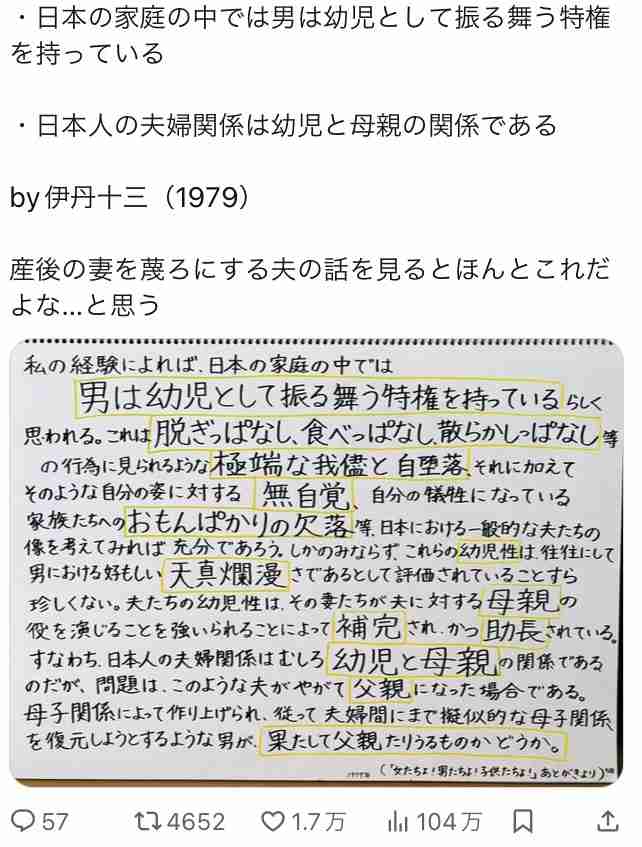 ・日本の家庭の中では男は幼児として振る舞う特権
を持っている
・日本人の夫婦関係は幼児と母親の関係である
by伊丹十三（1979）
産後の妻を蔑ろにする夫の話を見るとほんとこれだ
よな…と思う
私の経験によれば、日本の家庭の中では
男は幼児として振る舞う特権を持っているらしく
思われる。これは脱ぎっぱなし、食べっぱなし、散らかしっぱなし等
の行為に見られるような極端な我儘と自堕落、それに加えて
そのような自分の姿に対する無自覚、自分の犠牲になっている
家族たちへのおもんぱかりの欠落等、日本における一般的な夫たちの
像を考えてみれば充分であろう。しかのみならず、これらの幼児性は、往往にして
男における好もしい天真爛漫さであるとして評価されていることすら
珍しくない。夫たちの幼児性は、その妻たちが夫に対する母親の
役を演じることを強いられることによって補完され、かつ助長されている。
すなわち、日本人の夫婦関係はむしろ幼児と母親の関係である
のだが、問題は、このような夫がやがて父親になった場合である。
母子関係によって作り上げられ、従って夫婦間にまで擬似的な母子関係
を復元しようとするような男が、果たして父親たりうるものかどうか。
(「女たちよ!男たちよ!子供たちよ!」あとがきより)
57 4652 1.7万 104万